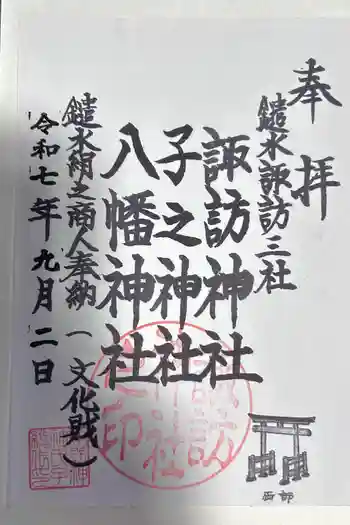 奉拝
鑓水諏訪三社
諏訪神社
子之神社
八幡神社
鑓水絹之商人奉納（文化財）
令和七年九月二日